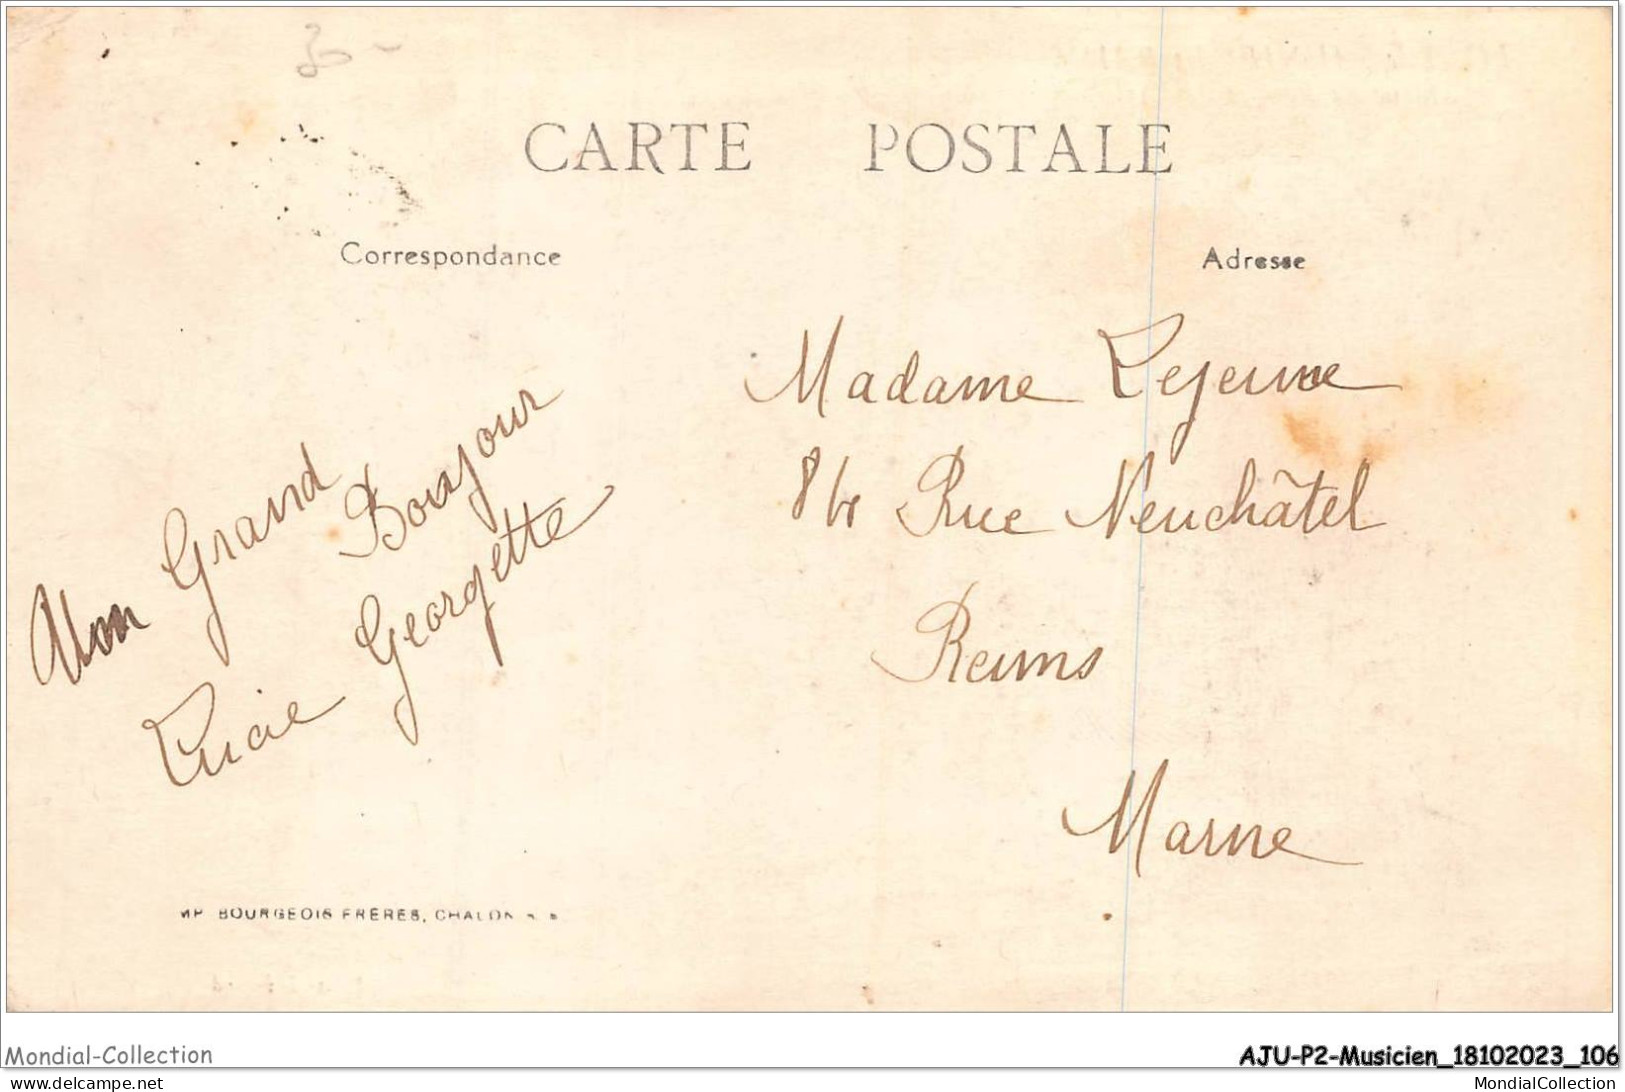 CARTE POSTALE
Correspondance
Adresse
Mon Grand Bonjour
Lucie Georgette
Madame Lejeune
Rue Neuchâtel
Reims
Marne
IMP BOURGEOIS FRÈRES, CHALON S. S.
Mondial-Collection
AJU-P2-Musicien_18102023_106
www.delcampe.net
MondialCollection